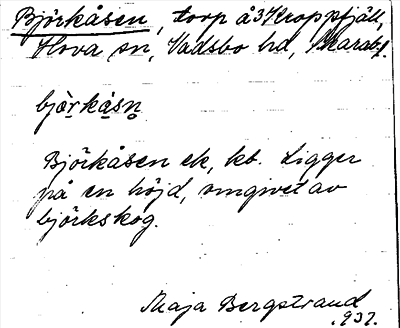 Björkåsen, torp å 3 Kroppfjäll,
Hova sn, Vadsbo hd, Skarabg.
bjö̀rkåsn̥
Björkåsen ek, kb. Ligger
på en höjd, omgivet av
björkskog.
Maja Bergstrand
1937.